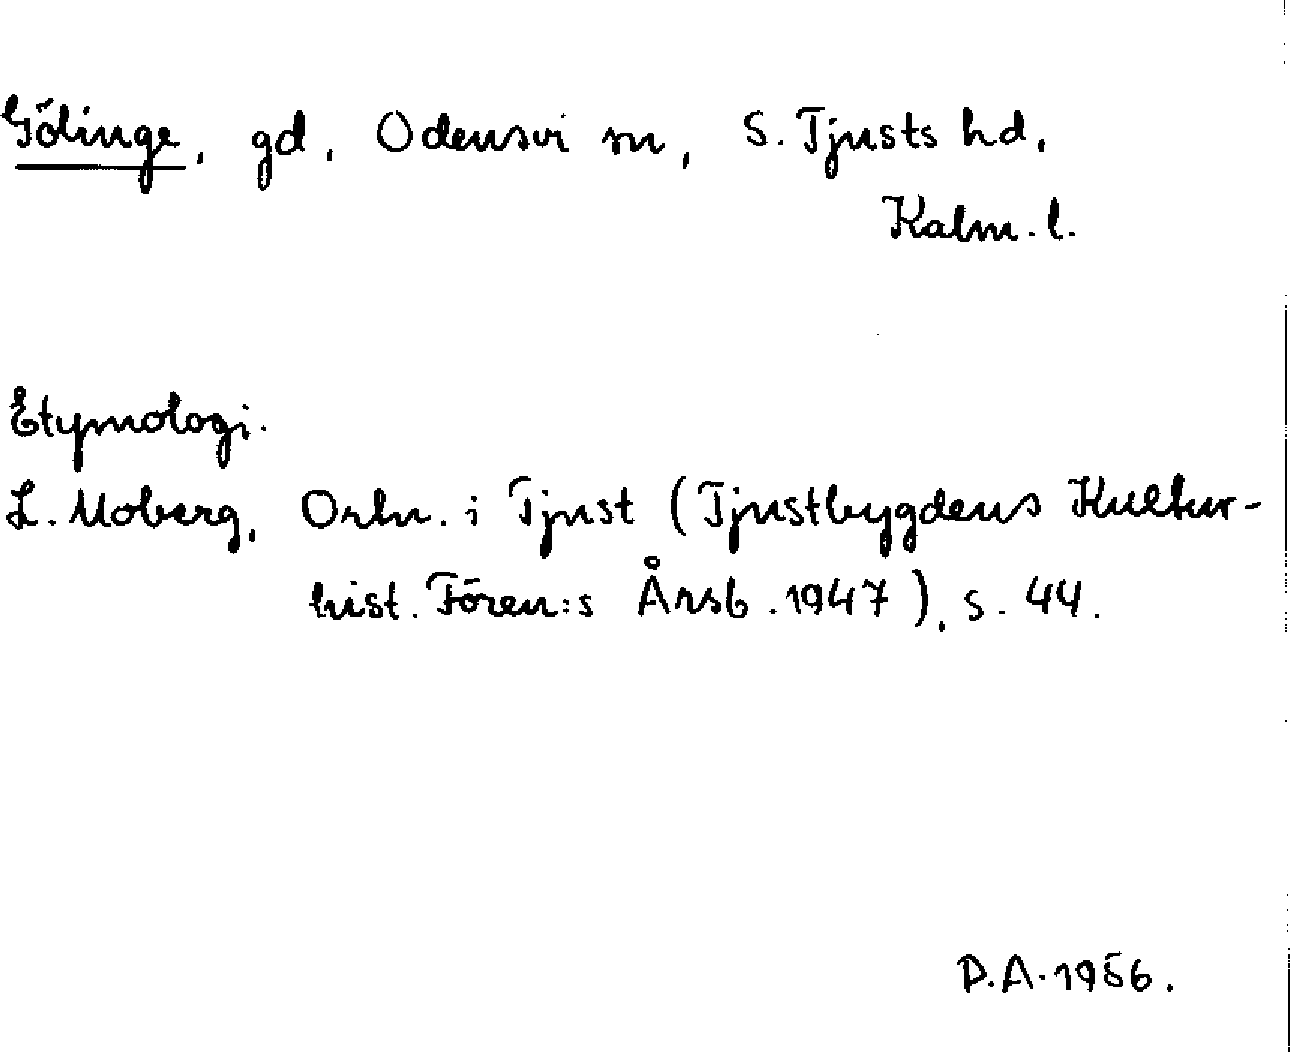 Gölinge, gd, Odensvi sn, S. Tjusts hd,
Kalm. l.
Etymologi.
L. Moberg, Ortn. i Tjust (Tjustbygdens Kultur-
hist. Fören:s Årsb. 1947), s. 44.
D.A. 1956.